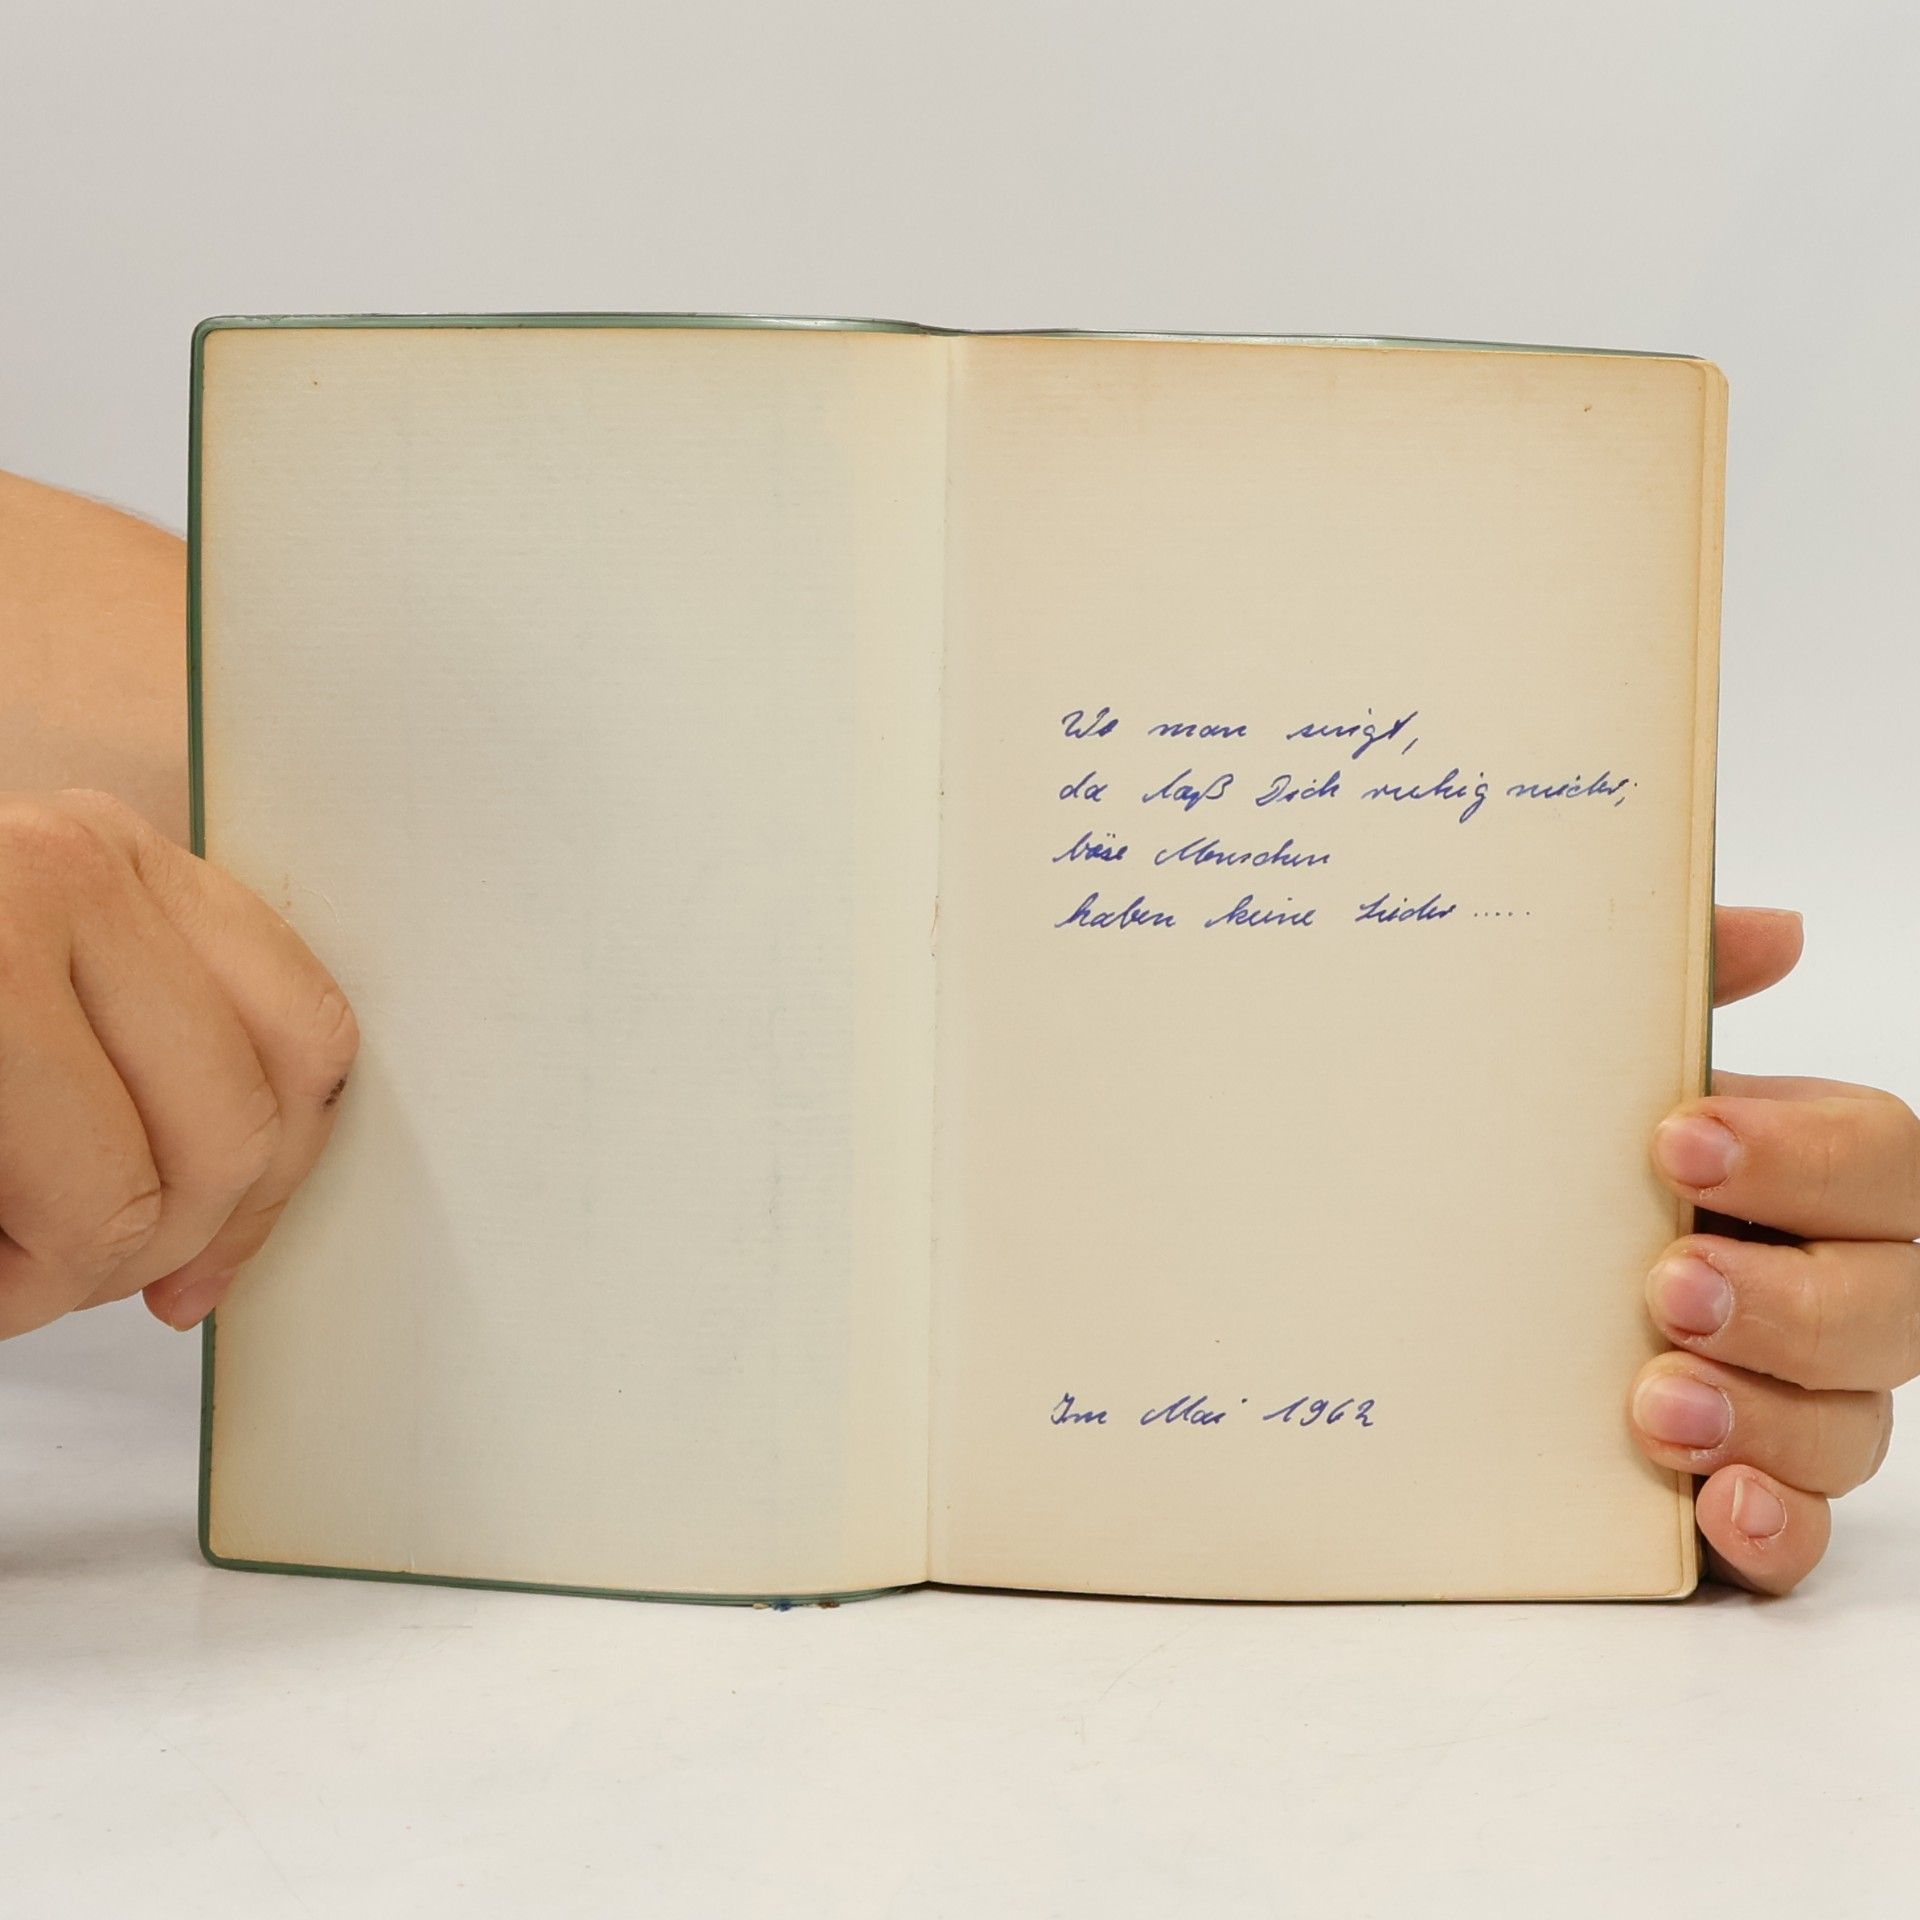 Wo man singt,
da laß Dich ruhig nieder;
böse Menschen
haben keine Lieder .....
Im Mai 1962